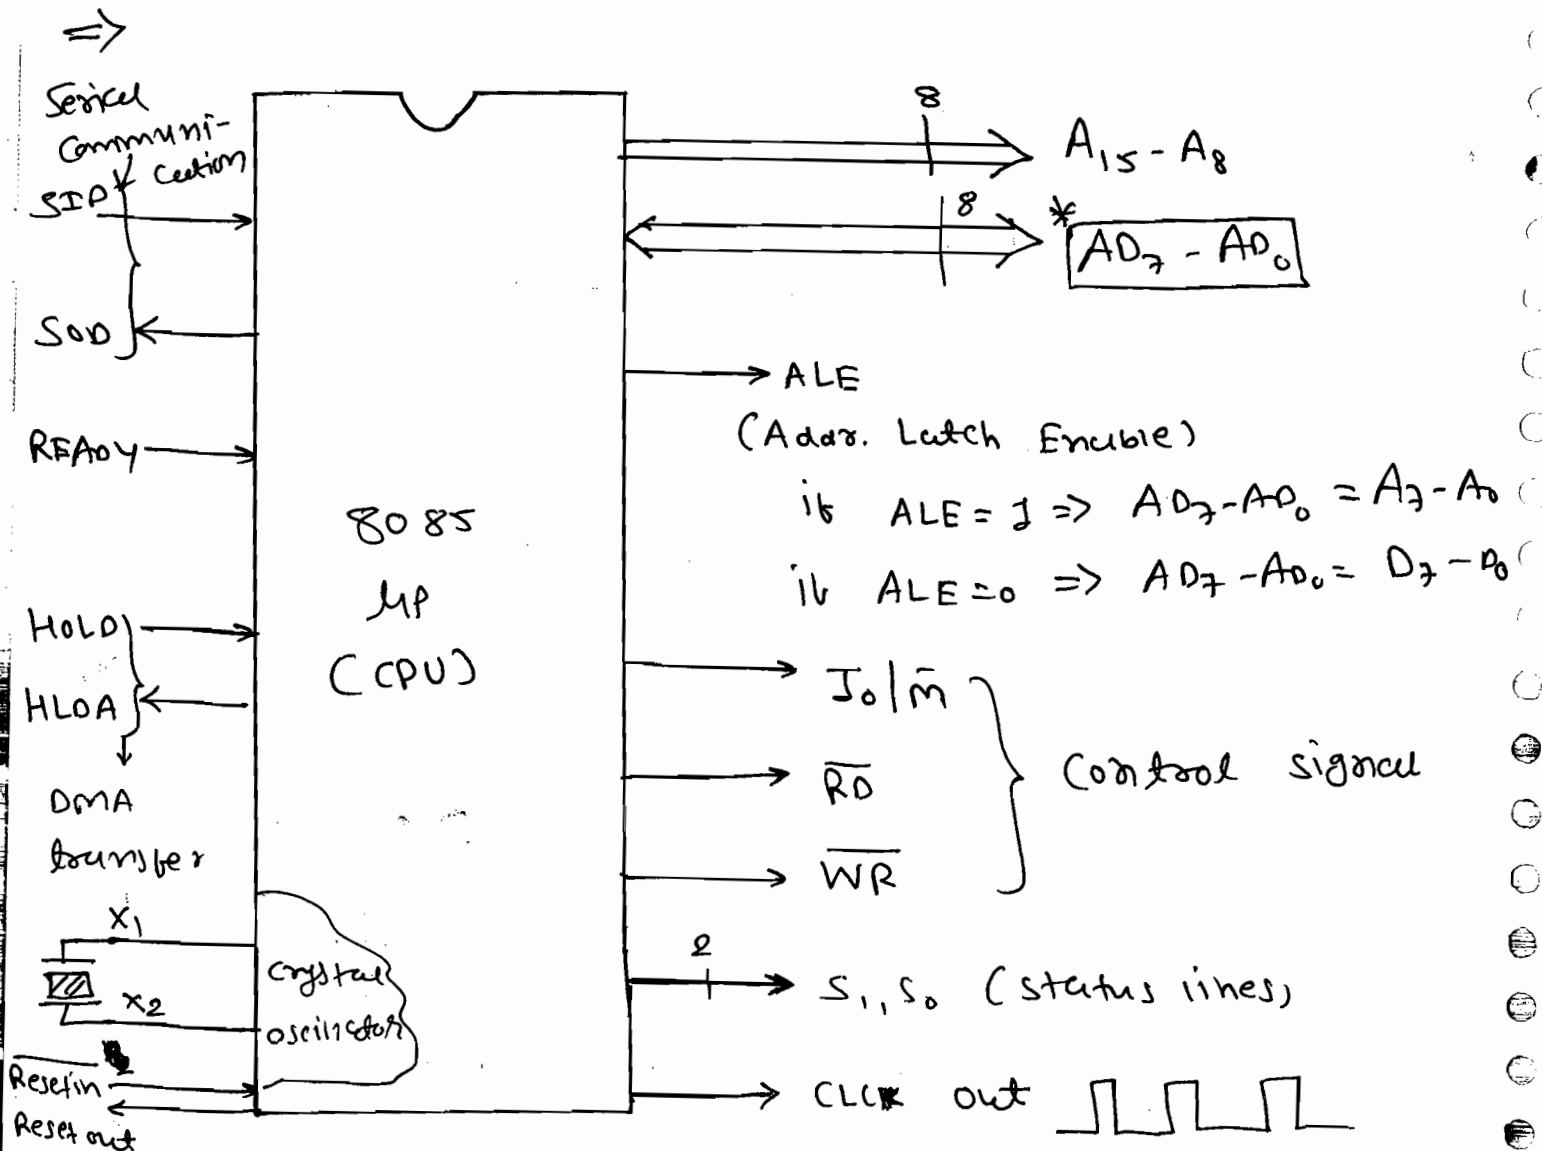 ⇒
Serial
Communi-
cation
SID
SOD
READY
HOLD
HLDA
DMA
transfer
X1
X2
Reset in
Reset out
8085
μP
(CPU)
Crystal
oscillator
8
A15 - A8
8
*
AD7 - AD0
ALE
(Addr. Latch Enable)
if ALE = 1 => AD7-AD0 = A7-A0
if ALE = 0 => AD7-AD0 = D7-D0
Io/m̄
R̅D̅
W̅R̅
Control signal
2
S1, S0 (status lines)
CLCK out